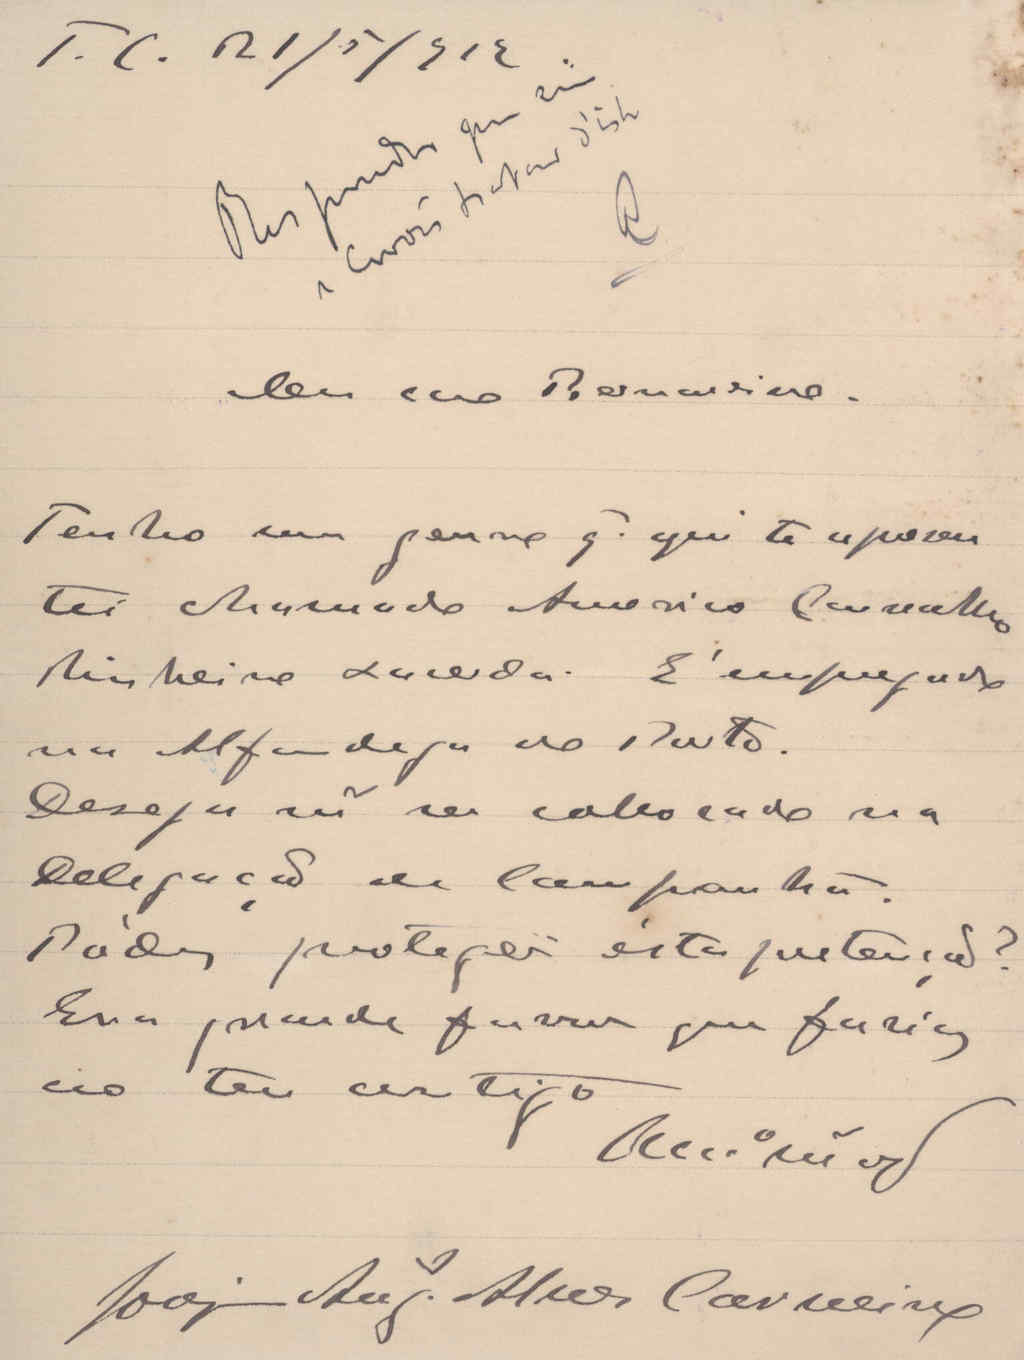 T. C. 21/5/912
Responder que sim
e tratar d'isto
R
Meu caro Bernardino.
Tenho um genro q. aqui te apresen
tei chamado Americo Carvalho
Pinheiro Lacerda. E' empregado
na Alfandega do Porto.
Deseja ser collocado na
Delegação de Campanhã.
Pódes proteger ésta pretenção?
Era grande favor que farias
ao teu antigo
Joaqm Augto. Alves Carneiro